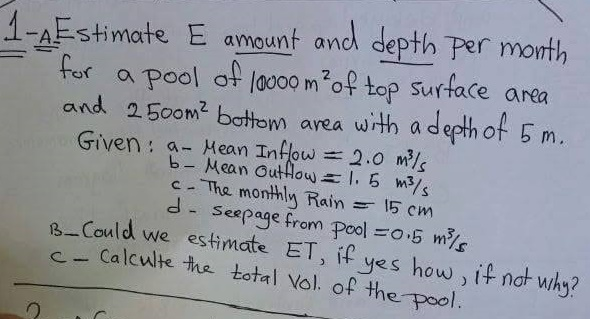 1-A Estimate E amount and depth per month
for a pool of 10000 m² of top surface area
and 2500m² bottom area with a depth of 5 m.
Given: a- Mean Inflow = 2.0 m³/s
b- Mean Outflow = 1.5 m³/s
c- The monthly Rain = 15 cm
d- seepage from pool = 0.5 m³/s
B- Could we estimate ET, if yes how, if not why?
C- Calculte the total Vol. of the pool.